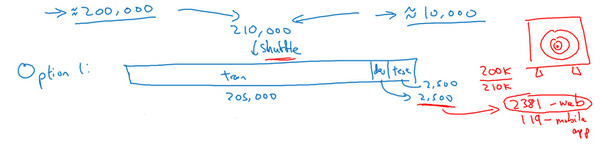 → ≈200,000
→ ≈10,000
210,000
↓ shuttle
Option 1:
train
dev
test
205,000
2,500
2,500
200K
210K
2381 - web
119 - mobile
app